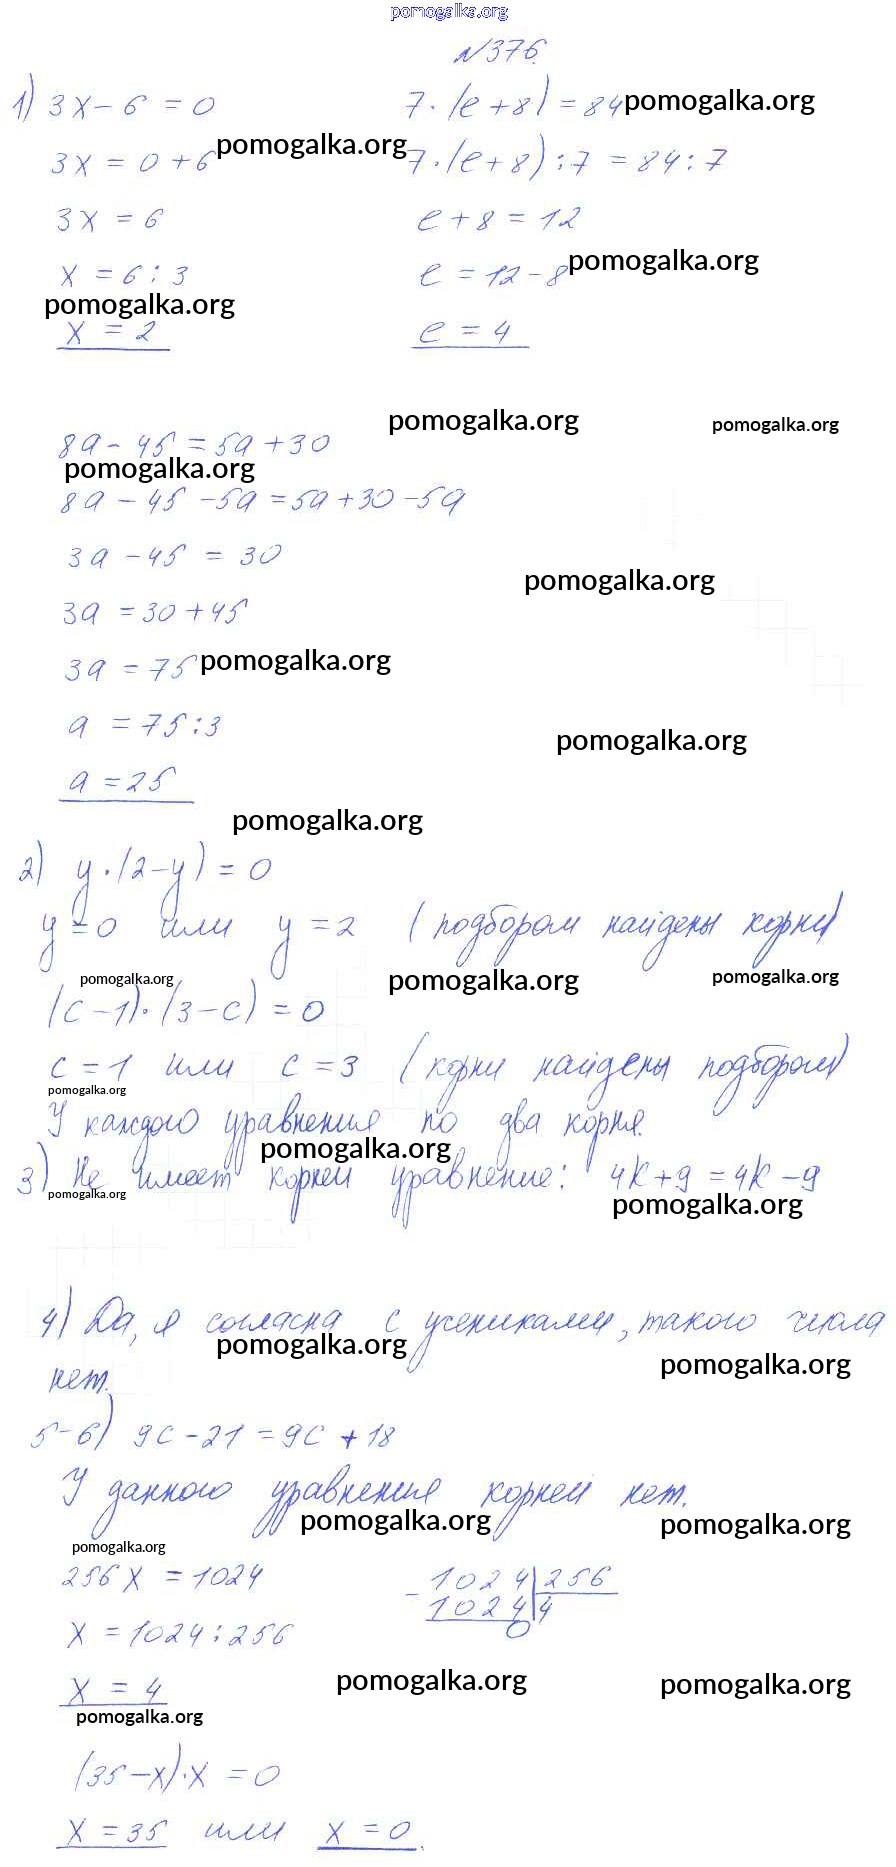 pomogalka.org
№376.
1) 3x - 6 = 0
3x = 0 + 6 pomogalka.org
3x = 6
x = 6 : 3
pomogalka.org
x = 2
7 · (e + 8) = 84 pomogalka.org
7 · (e + 8) : 7 = 84 : 7
e + 8 = 12
e = 12 - 8 pomogalka.org
e = 4
pomogalka.org pomogalka.org
8a - 45 = 5a + 30
pomogalka.org
8a - 45 - 5a = 5a + 30 - 5a
3a - 45 = 30
pomogalka.org
3a = 30 + 45
3a = 75 pomogalka.org
a = 75 : 3
pomogalka.org
a = 25
pomogalka.org
2) y · (2 - y) = 0
y = 0 или y = 2 (подбором найдены корни)
pomogalka.org pomogalka.org pomogalka.org
(c - 1) · (3 - c) = 0
c = 1 или c = 3 (корни найдены подбором)
pomogalka.org
У каждого уравнения по два корня.
pomogalka.org
3) Не имеет корней уравнение: 4k + 9 = 4k - 9
pomogalka.org pomogalka.org
4) Да, я согласна с учениками, такого числа
pomogalka.org pomogalka.org
нет.
5-6) 9c - 21 = 9c + 18
У данного уравнения корней нет.
pomogalka.org pomogalka.org
pomogalka.org
256x = 1024
x = 1024 : 256
x = 4
- 1024 | 256
1024 | 4
0
pomogalka.org pomogalka.org
pomogalka.org
(35 - x) · x = 0
x = 35 или x = 0.